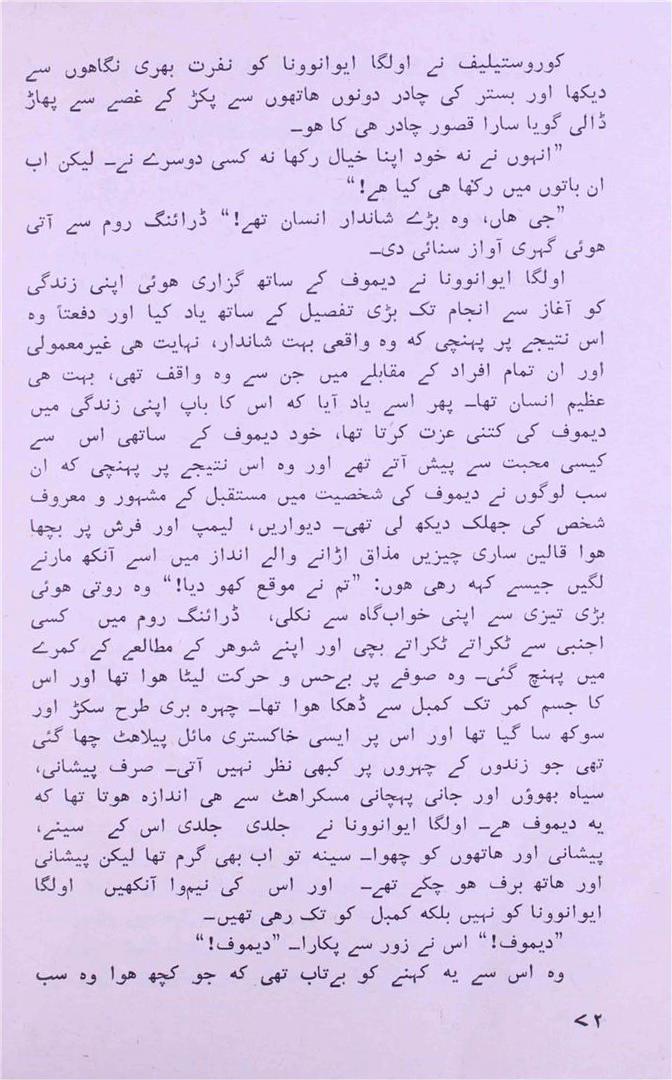 کوروستیلیف نے اولگا ایوانوونا کو نفرت بھری نگاھوں سے
دیکھا اور بستر کی چادر دونوں ھاتھوں سے پکڑ کے غصے سے پھاڑ
ڈالی گویا سارا قصور چادر ھی کا ھو۔
”انہوں نے نہ خود اپنا خیال رکھا نہ کسی دوسرے نے۔ لیکن اب
ان باتوں میں رکھا ھی کیا ھے!“
”جی ھاں، وہ بڑے شاندار انسان تھے!“ ڈرائنگ روم سے آتی
ھوئی گہری آواز سنائی دی۔
اولگا ایوانوونا نے دیموف کے ساتھ گزاری ھوئی اپنی زندگی
کو آغاز سے انجام تک بڑی تفصیل کے ساتھ یاد کیا اور دفعتاً وہ
اس نتیجے پر پہنچی کہ وہ واقعی بہت شاندار، نہایت ھی غیرمعمولی
اور ان تمام افراد کے مقابلے میں جن سے وہ واقف تھی، بہت ھی
عظیم انسان تھا۔ پھر اسے یاد آیا کہ اس کا باپ اپنی زندگی میں
دیموف کی کتنی عزت کرتا تھا، خود دیموف کے ساتھی اس سے
کیسی محبت سے پیش آتے تھے اور وہ اس نتیجے پر پہنچی کہ ان
سب لوگوں نے دیموف کی شخصیت میں مستقبل کے مشہور و معروف
شخص کی جھلک دیکھ لی تھی۔ دیواریں، لیمپ اور فرش پر بچھا
ھوا قالین ساری چیزیں مذاق اڑانے والے انداز میں اسے آنکھ مارنے
لگیں جیسے کہہ رھی ھوں: ”تم نے موقع کھو دیا!“ وہ روتی ھوئی
بڑی تیزی سے اپنی خواب‌گاہ سے نکلی، ڈرائنگ روم میں کسی
اجنبی سے ٹکراتے ٹکراتے بچی اور اپنے شوھر کے مطالعے کے کمرے
میں پہنچ گئی۔ وہ صوفے پر بےحس و حرکت لیٹا ھوا تھا اور اس
کا جسم کمر تک کمبل سے ڈھکا ھوا تھا۔ چہرہ بری طرح سکڑ اور
سوکھ سا گیا تھا اور اس پر ایسی خاکستری مائل پیلاھٹ چھا گئی
تھی جو زندوں کے چہروں پر کبھی نظر نہیں آتی۔ صرف پیشانی،
سیاہ بھوؤں اور جانی پہچانی مسکراھٹ سے ھی اندازہ ھوتا تھا کہ
یہ دیموف ھے۔ اولگا ایوانوونا نے جلدی جلدی اس کے سینے،
پیشانی اور ھاتھوں کو چھوا۔ سینہ تو اب بھی گرم تھا لیکن پیشانی
اور ھاتھ برف ھو چکے تھے۔ اور اس کی نیم‌وا آنکھیں اولگا
ایوانوونا کو نہیں بلکہ کمبل کو تک رھی تھیں۔
”دیموف!“ اس نے زور سے پکارا۔ ”دیموف!“
وہ اس سے یہ کہنے کو بےتاب تھی کہ جو کچھ ھوا وہ سب
۷۲